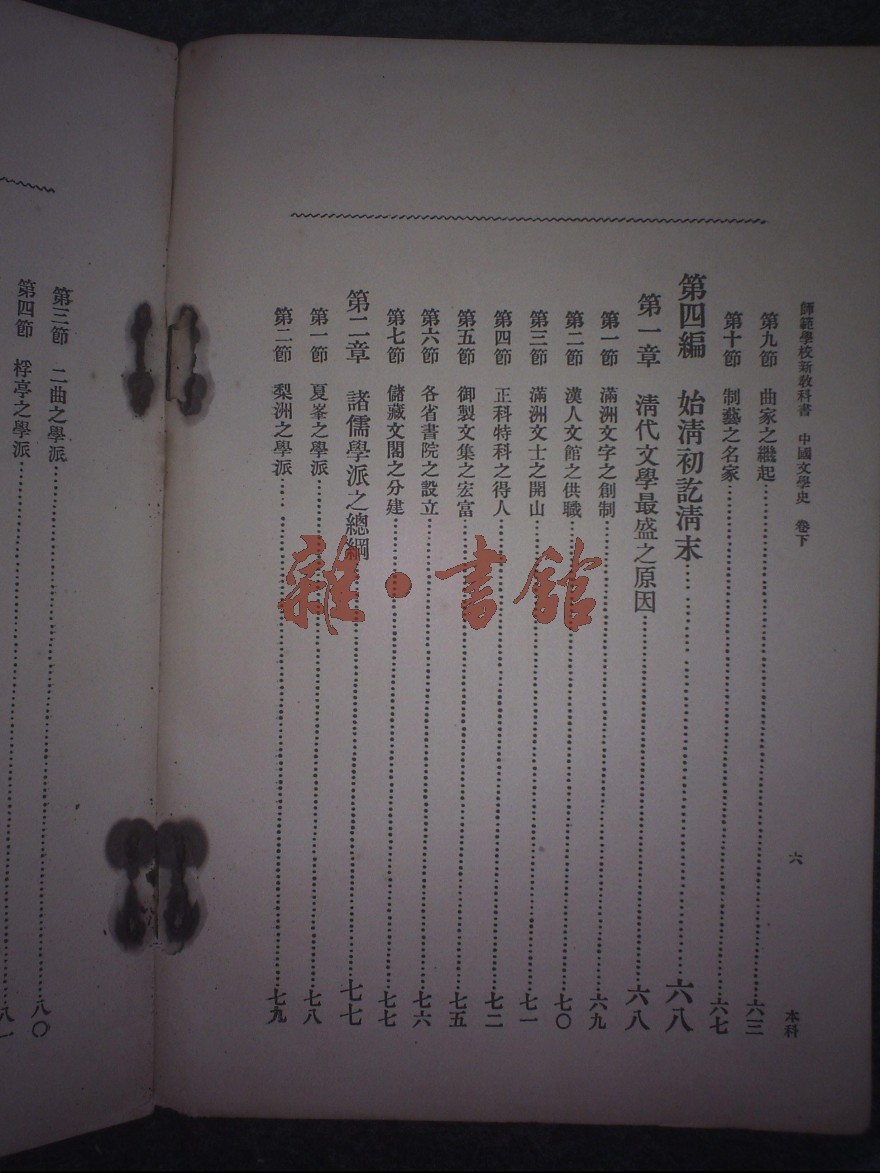 師範學校新敎科書　中國文學史　卷下　六　本科
第九節　曲家之繼起……六三
第十節　制藝之名家……六七
第四編　始淸初訖淸末……六八
第一章　淸代文學最盛之原因……六八
第一節　滿洲文字之創制……六九
第二節　漢人文館之供職……七〇
第三節　滿洲文士之開山……七一
第四節　正科特科之得人……七二
第五節　御製文集之宏富……七五
第六節　各省書院之設立……七六
第七節　儲藏文閣之分建……七七
第二章　諸儒學派之總綱……七七
第一節　夏峯之學派……七八
第二節　梨洲之學派……七九
第三節　二曲之學派……八〇
第四節　桴亭之學派……八一
雜·書館